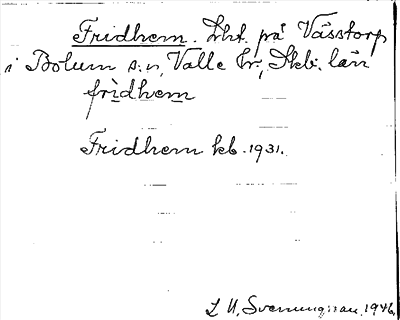 Fridhem. Lht. på Västorp
i Bolum s:n, Valle hr, Skb. län
fridhem
Fridhem kb. 1931.
S. Svenungsson 1946.